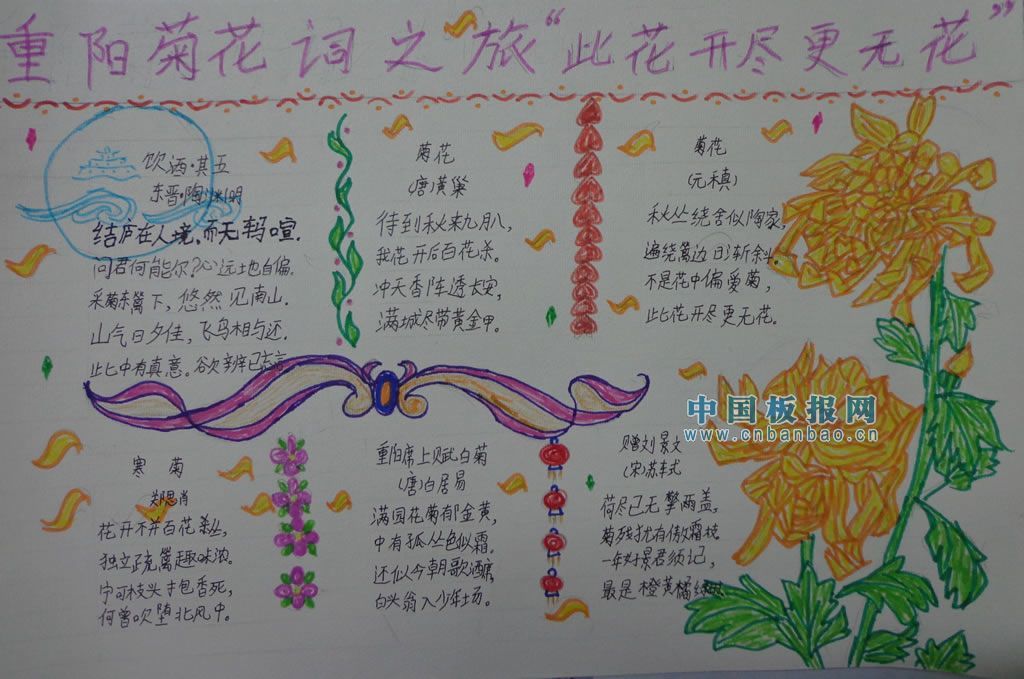 重阳菊花词之旅“此花开尽更无花”
饮酒·其五
东晋·陶渊明
结庐在人境,而无车马喧.
问君何能尔?心远地自偏.
采菊东篱下,悠然见南山.
山气日夕佳,飞鸟相与还.
此中有真意。欲辨已忘言
菊花
(唐)黄巢
待到秋来九月八,
我花开后百花杀。
冲天香阵透长安,
满城尽带黄金甲。
菊花
(元稹)
秋丛绕舍似陶家,
遍绕篱边日渐斜。
不是花中偏爱菊,
此花开尽更无花。
中国板报网
www.cnbanbao.cn
寒菊
郑思肖
花开不并百花丛,
独立疏篱趣味浓。
宁可枝头抱香死,
何曾吹堕北风中。
重阳席上赋白菊
(唐)白居易
满园花菊郁金黄,
中有孤丛色似霜。
还似今朝歌酒席,
白头翁入少年场。
赠刘景文
(宋)苏轼
荷尽已无擎雨盖,
菊残犹有傲霜枝
一年好景君须记,
最是橙黄橘绿